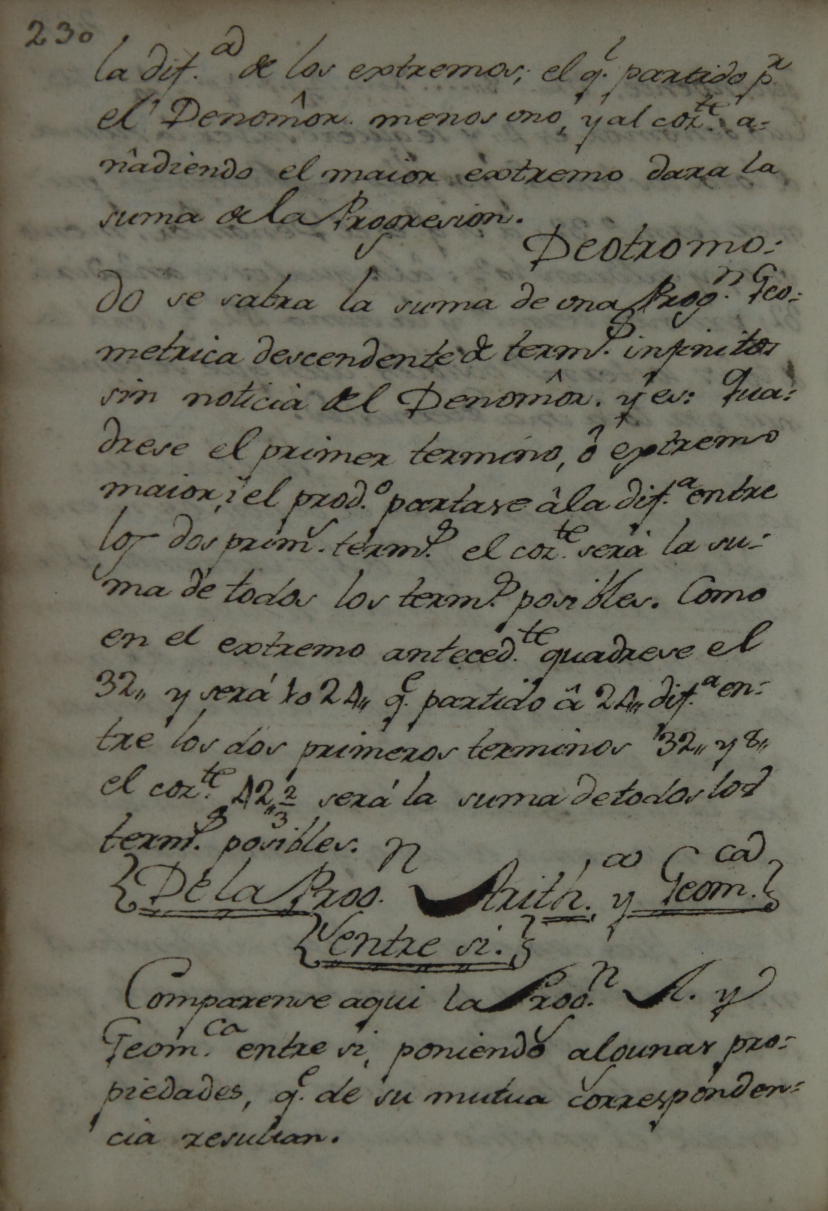 230
la dif.ª de los extremos; el q.l partido p.r
el Denomôor. menos uno, y al coz.te a=
ñadiendo el maior extremo dara la
suma de la Progresion.
De otro mo=
do se sabra la suma de una Prog.n Geo=
metrica descendente de term.s infinitos
sin noticia del Denomôor. y es: Qua=
drese el primer termino, ô extremo
maior, i el prod.o partase â la dif.a entre
los dos prim.s term.s el coz.te será la su=
ma de todos los term.s posibles. Como
en el extremo anteced.te quadrese el
32,, y será 1024,, q.e partido â 24,, dif.a en=
tre los dos primeros terminos 32,, y 8,,
el coz.te 42,, 2/3 será la suma de todos los
term.s posibles.
{De la Prog.n Arith.ca y Geom.ca}
{entre si.}
Comparense aqui la Prog.n A. y
Geom.ca entre si, poniendo algunas pro=
piedades, q.e de su mutua corresponden=
cia resultan.